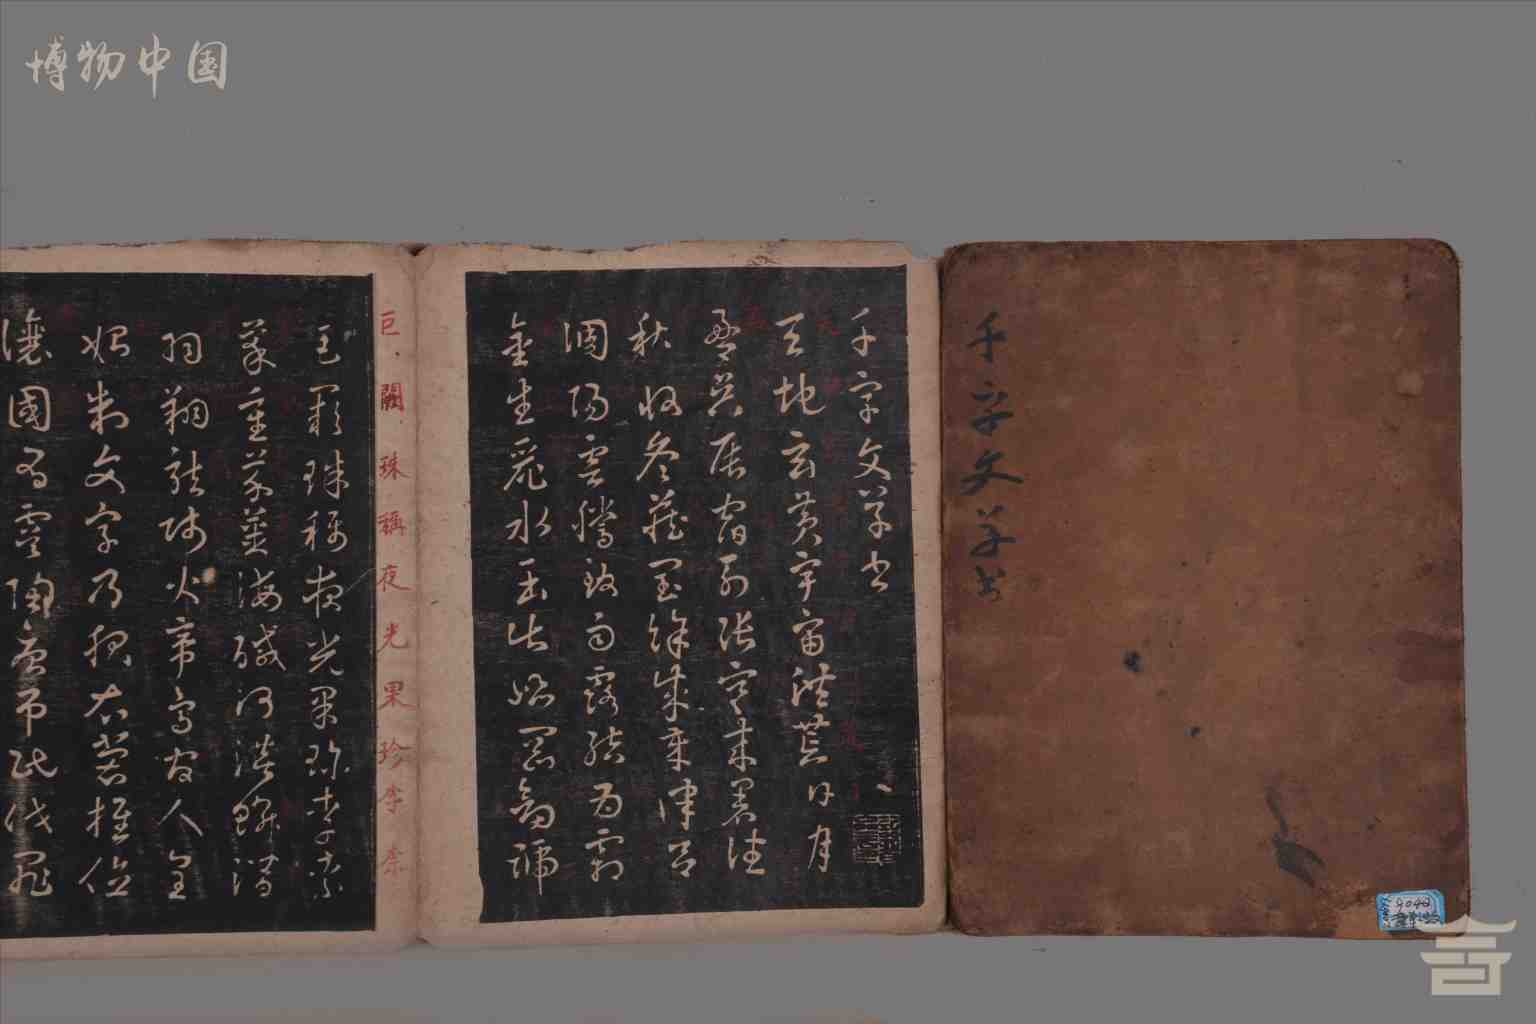 博物中国
千字文草书
千字文草书
天地玄黃宇宙洪荒日月
盈昃辰宿列張寒來暑往
秋收冬藏閏餘成歲律呂
調陽雲騰致雨露結為霜
金生麗水玉出崑崗劍號
巨闕珠稱夜光果珍李柰
巨闕珠稱夜光果珍李柰
菜重芥薑海鹹河淡鱗潛
羽翔龍師火帝鳥官人皇
始制文字乃服衣裳推位
讓國有虞陶唐弔民伐罪